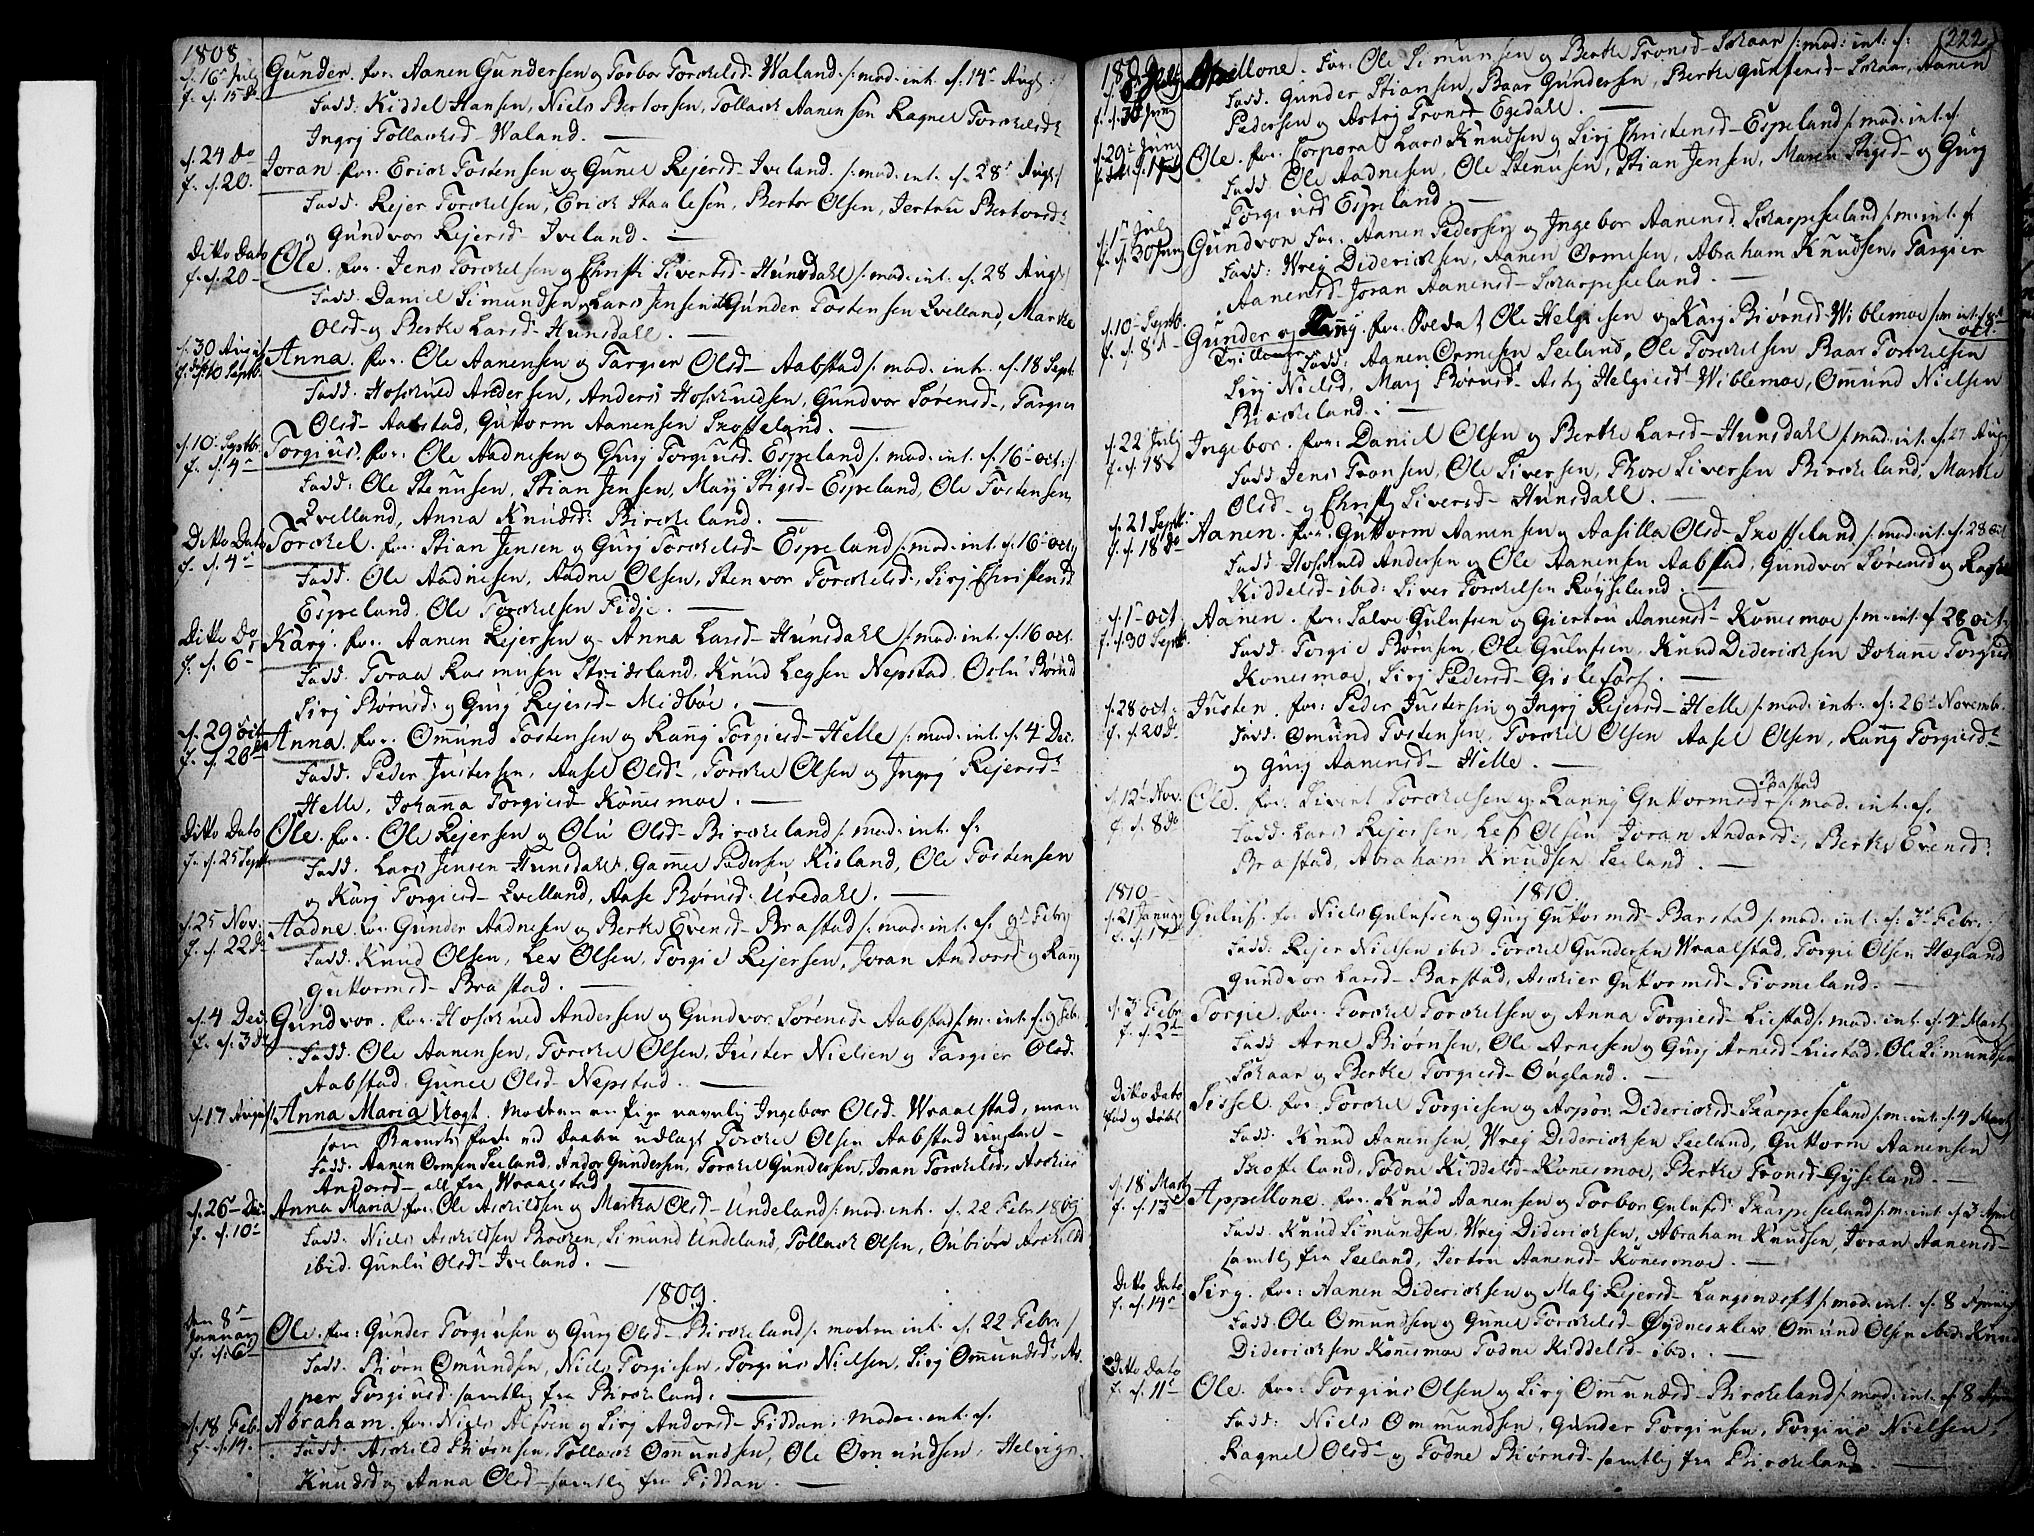 1808
d. 16 July Gunder. for. Aanen Gundersen og Torbor Torkelsd. Waland /: mod: int. d. 14 Aug: :/
f. d. 15 do
Fadd. Kiddel Hansen, Niels Bertorsen, Tollack Aanensen Ragnel Torkelsd:
Ingrj Tollacksd. Waland.
d. 24 Do Joran for. Erick Tostensen og Gunel Rejersd. Iveland. /: mod: int. d. 28 Aug :/
f. d. 20.
Fadd. Rejer Torkelsen, Erick Staalesen, Bertor Olsen, Jertru Bertorsd:
og Gundvor Rejersd. Iveland.
Ditto Dato Ole. for. Jens Torkelsen og Christi Sivertsd. Hunsdahl /: mod: int. d. 28 Aug :/
f. d. 20
Fadd. Daniel Simundsen og Lars Jensen Gunder Tostensen Qvelland, Marthe
Olsd. og Berthe Larsd. Hunsdahl.
d. 30 August Anna. for. Ole Aanensen og Targier Olsd. Aabstad /: mod. int. d. 18 Sept:
Fadd. Hoskuld Andersen, Anders Hoskuldsen, Gundvor Sørensd., Targier
Olsd. Aabstad, Guttorm Aanensen Skofseland.
d. 10 Septbr. Torgius. for. Ole Aadnesen og Gurj Torgiusd. Espeland /: mod: int. d. 16 oct: :/
f. d. 4
Fadd. Ole Stenusen, Stian Jensen, Marj Stigsd. Espeland, Ole Tostensen
Qvelland, Anna Knudsd: Birkeland.
Ditto Dato Torckel. for. Stian Jensen og Gurj Torkelsd. Espeland /: mod: int. d. 16 oct
f. d. 4
Fadd. Ole Aadnesen, Aadne Olsen, Stenvor Torkelsd., Sirj Christensd
Espeland. Ole Torkelsen Fidje.
Ditto Do Karj. for. Aanen Rejersen og Anna Larsd. Hunsdahl /: mod: int. d. 16 oct.
f. d. 6
Fadd. Toraa Rasmusen Stridsland. Knud Legsen Nepstad. Oslu Børnsd
Sirj Børnsd. og Gurj Rejersd. Midbøe.
d. 29 oct Anna. for. Omund Tostensen og Rang Torgiesd. Helle /: mod: int. d. 4 Dec.
f. d. 26
Fadd. Peder Justersen, Aasel Olsd., Torkel Olsen og Ingrj Rejersd.
Helle, Johanna Torgiesd. Konnesmoe.
Ditto Dato Ole. for. Ole Rejersen og Olu Olsd. Birkeland /: mod: int. d.
f. d. 25 Sept.
Fadd. Lars Jensen Hunsdahl. Gamel Pedersen Kisland, Ole Tostensen
og Karj Torgiesd. Qvelland, Aase Børnsd. Uredahl.
d. 25 Nov. Aadne. for. Gunder Aadnesen og Berthe Evensd. Brastad /: mod: int. d. 9 Febr
f. d. 22 do
Fadd. Knud Olsen, Lev Olsen, Torgie Rejersen, Joran Andorsd og Rang
Guttormsd. Brastad.
d. 4 Dec. Gundvor. for. Hoskuld Andersen og Gundvor Sørensd. Aabstad /: m: int. d. 9 Febr.
f. d. 3 d
Fadd. Ole Aanensen, Torkel Olsen, Juster Nielsen og Targier Olsd.
Aabstad. Gunel Olsd. Nepstad.
d. 17 August Anna Maria Vogt. Moderen en Pige navnlig Ingebor Olsd. Wraalstad, man
som Barnets fader ved Daaben udlagt Torkel Olsen Aabstad ungkarl
Fadd. Aanen Ormsen Seeland, Andor Gundersen, Torkel Gundersen, Joran Torkelsd., Askier
Andorsd. all fra Wraalstad
d. 26 Dec Anna Maria. for. Ole Askildsen og Martha Olsd. Undeland /: mod: int. d. 22 Febr. 1809
f. d. 10
Fadd. Niels Askildsen Broken, Simund Undeland, Tollack Olsen, Onbiør Askildsd
ibid. Gunlu Olsd. Iveland.
1809.
den 8 January Ole. for: Gunder Torgiusen og Gurj Olsd. Birkeland /: moderen int. d. 22 Febr. :/
f. d. 6
Fadd. Biørn Omundsen, Niels Torgiesen, Torgius Nielsen, Sirj Omundsd. As-
per Torgiusd. samtlig fra Birkeland.
d. 18 Febr. Abraham. for. Niels Alfsen og Sirj Andorsd. Fiddan. Moder. int. d.
f. d. 14.
Fadd. Askild Biørnsen, Tollack Omundsen, Ole Omundsen, Helvign
Knudsd og Anna Olsd. samtlig fra Fiddan.
222
Apellone. for. Ole Simunsen og Berthe Tronsd. Skaar /: mod: int: d:
Fadd. Gunder Stiansen, Baar Gundersen, Berthe Gundersd. Skaar, Aanen
Pedersen og Astrj Tronsd Egedahl.
d. 29 Junj Ole. for. Corporal Lars Knudsen og Sirj Christensd. Espeland /: mod: int. d.
Fadd. Ole Aadnesen, Ole Stenusen, Stian Jensen, Maren Stigsd. og Gurj
Torgiusd Espeland.
d. 1 July Gundvor for. Aanen Pedersen og Ingebor Aanensd. Skarpeseland /: m: int. d.
f. d. 30 Junj
Fadd: Wrej Didericksen, Aanen Ormsen, Abraham Knudsen, Targier
Aanensd. Joran Aanensd. Skarpeseland.
d. 10 Septb. Gunder og Rang for. Soldat Ole Helgesen og Karj Biørnsd. Wiblemoe /: m int. d. oct.
f. d. 8 d
Tvillinger Fadd: Aanen Ormsen Seeland, Ole Torkelsen Baar Torkelsen
Sirj Nielsd, Marj Børnsd. Astrj Helgiesd. Wiblemoe, Omund Nielsen
Birkeland.
d. 22 July Ingebor. for: Daniel Olsen og Berthe Larsd. Hunsdahl /: mod: int. d. 27 Aug
f. d. 18
Fadd Jens Tronsen, Ole Siversen, Thore Siversen Birkeland, Marthe
Olsd. og Christj Siversd. Hunsdahl.
d. 21 Sept. Aanen. for. Guttorm Aanensen og Aasilla Olsd. Skofseland /: mod: int. d. 28 oct
f. d. 18 do
Fadd. Hoskuld Andersen og Ole Aanensen Aabstad, Gundvor Sørensd og Ragnel
Kiddelsd. ibid: Siver Torkelsen Røyseland.
d. 1 oct Aanen. for. Salve Gulufsen og Giertru Aanensd. Konnesmoe /: m: int. d. 28 oct.
f. d. 30 Sept.
Fadd. Torgie Børnsen, Ole Gulufsen, Knud Didericksen Johane Torgiusd
Konnesmoe, Sirj Pedersd. Gislefors.
d. 28 oct. Justen. for. Peder Justersen og Ingrj Rejersd. Helle /: mod. int. d. 26 Novemb.
f. d. 20 do
Fadd. Omund Tostensen, Torkel Olsen Aasel Olsen, Rang Torgiesd.
og Gurj Aanensd. Helle.
d. 12 Nov. Ole. for. Sivert Torkelsen og Ranny Guttormsd. Brastad /: mod: int. d.
f. d. 8 do
Fadd. Lars Rejersen, Lef Olsen, Joran Andorsd., Berthe Evensd.
Brastad, Abraham Knudsen Seeland.
1810
1810
d. 21 Januarj Guluf. for. Niels Gulufsen og Gurj Guttormsd. Barstad /: mod: int. d. 3 Febr.
f. d. 17
Fadd. Rejer Nielsen ibid. Torkel Gundersen Wraalstad, Torgie Olsen Hægland
Gundvor Larsd. Barstad, Askier Guttormsd. Tiomeland.
d. 3 Febr. Torgie. for. Torkel Torkelsen og Anna Torgiesd. Liestad /: mod: int. d. 4 Martj
f. d. 2
Fadd Arne Biørnsen, Ole Arnesen og Gurj Arnesd. Liestad, Ole Simundsen
Skaar og Berthe Torgiesd. Øugland.
Ditto Dato Sissel. for. Torkel Torgiesen og Aspør Didericksd. Skarpeseland /: m: int. d. 4 Martj
Fadd. Knud Aanensen, Wrej Didericksen Seeland, Guttorm Aanensen
Skofseland, Todne Kiddelsd. Konnesmoe, Berthe Tronsd. Gyseland.
d. 18 Martj Appellone. for. Knud Aanensen og Torbor Gulufsd. Skarpeseland /: m: int. d. 3 April
f. d. 13
Fadd. Knud Simundsen, Wrej Didericksen, Abraham Knudsen, Joran Aanensd.
samtlig fra Seeland, Jertru Aanensd. Konnesmoe.
Ditto Dato Sirg. for: Aanen Didericksen og Malj Rejersd. Langenæst /: mod: int. d. 8 Aprilis
f. d. 14
Fadd. Ole Omundsen og Gunel Torkelsd. Øydneskleo. Omund Olsen ibid. Knud
Didericksen Konnesmoe Todne Kiddelsd. ibid.
Ditto Dato Ole. for: Torgius Olsen og Sirj Omundsd. Birkeland /: mod: int. d. 8 Apr.
f. d. 11
Fadd: Niels Ommundsen, Gunder Torgiusen, Torgius Nielsen,
Ragnel Olsd. og Todne Biørnsd. samtlig fra Birkeland.